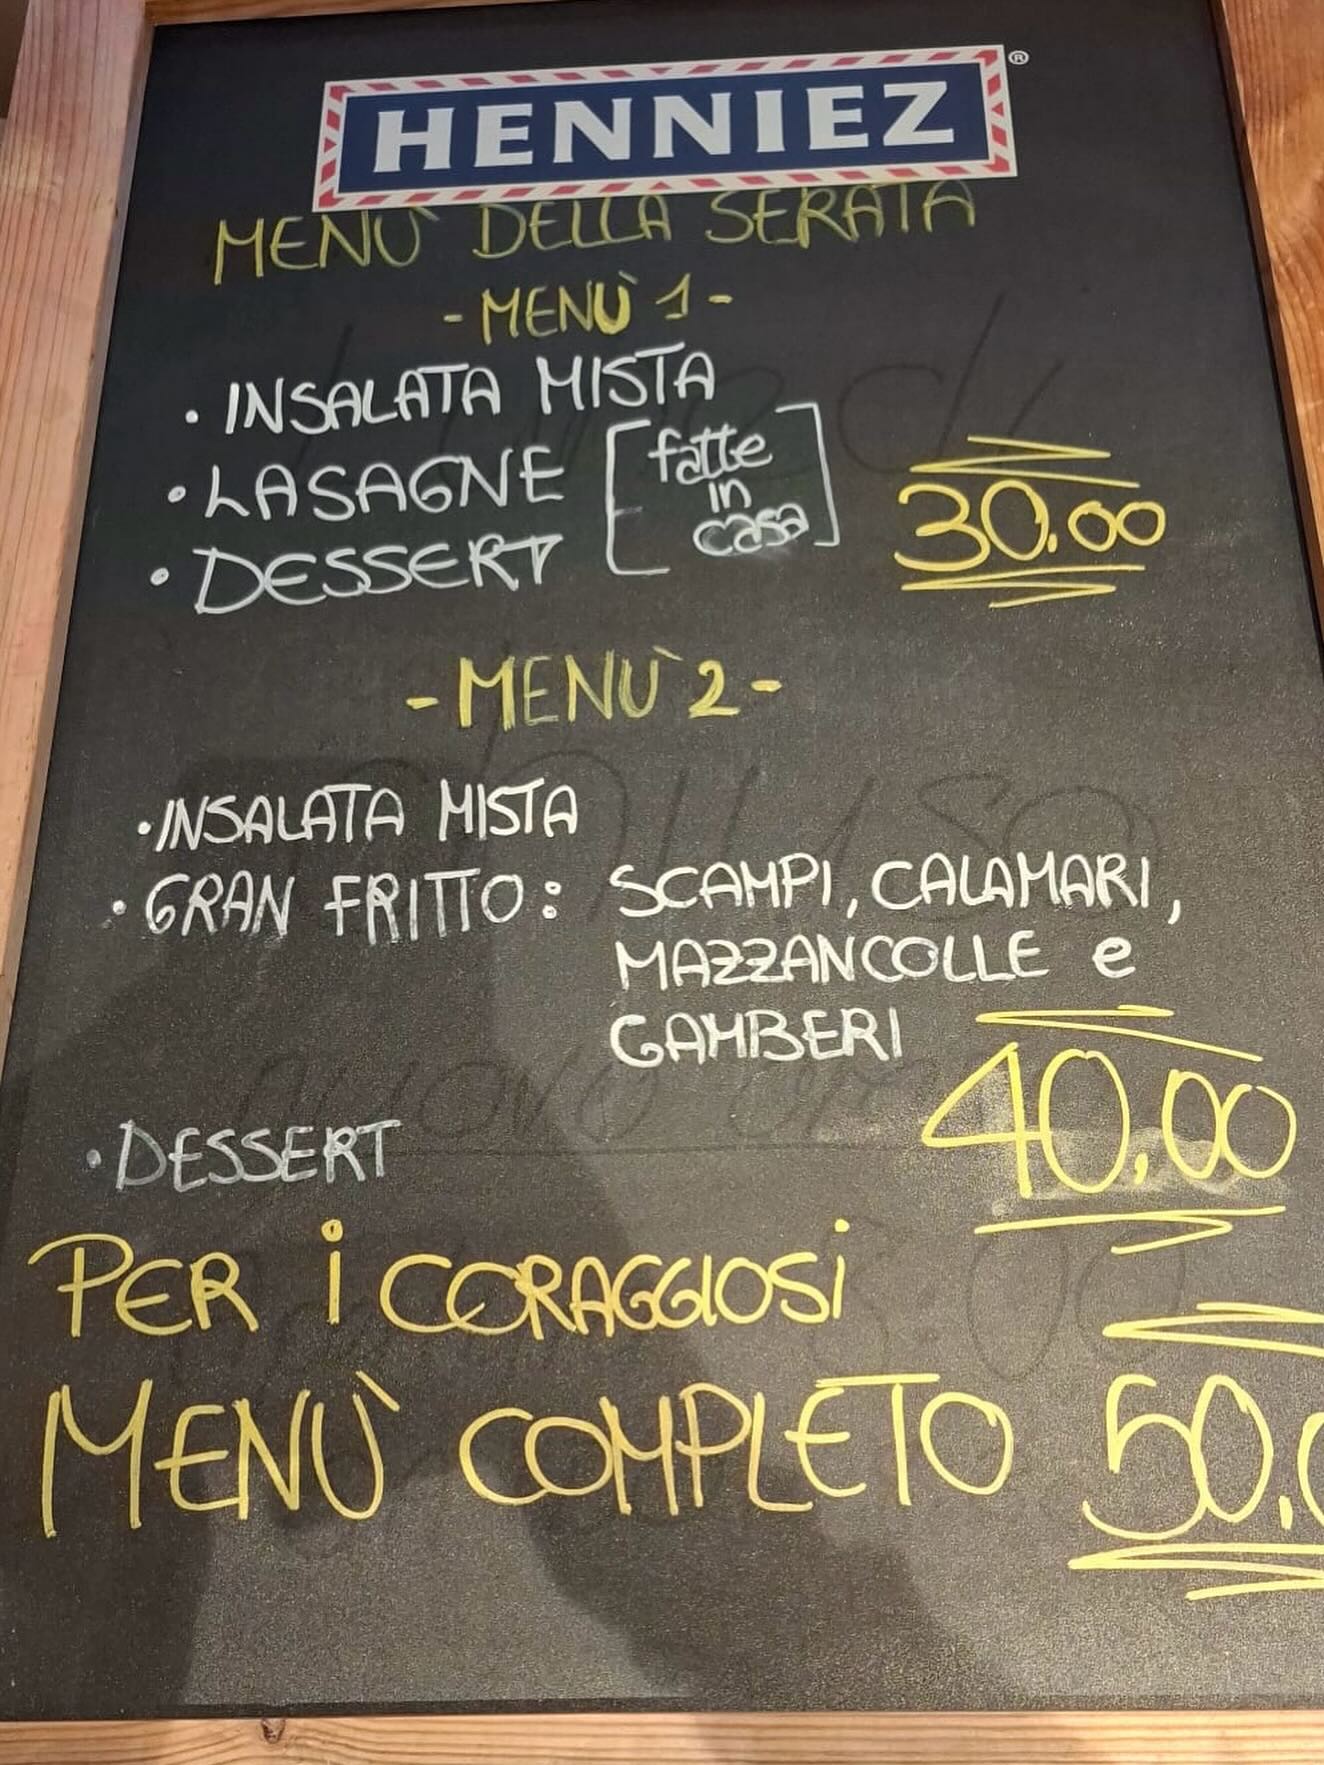 HENNIEZ®
MENÙ DELLA SERATA
- MENÙ 1 -
• INSALATA MISTA
• LASAGNE [fatte in casa]
• DESSERT
30.00
- MENÙ 2 -
• INSALATA MISTA
• GRAN FRITTO: SCAMPI, CALAMARI,
MAZZANCOLLE e
GAMBERI
40,00
• DESSERT
PER i CORAGGIOSi
MENÙ COMPLETO 50.